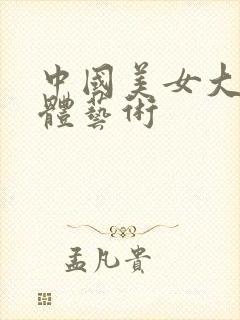 中國美女大
體藝術
孟凡貴